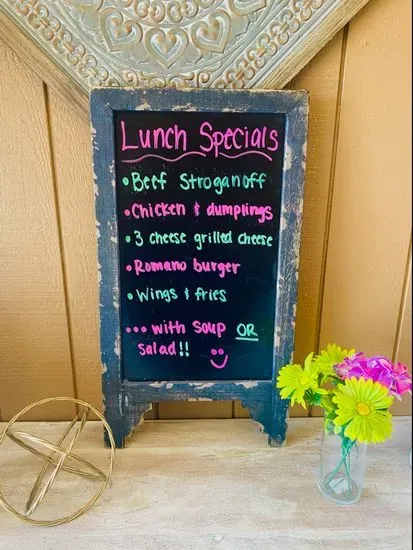 Lunch Specials
• Beef Stroganoff
• Chicken & dumplings
• 3 cheese grilled cheese
• Romano burger
• Wings & fries
... with soup OR
salad!!